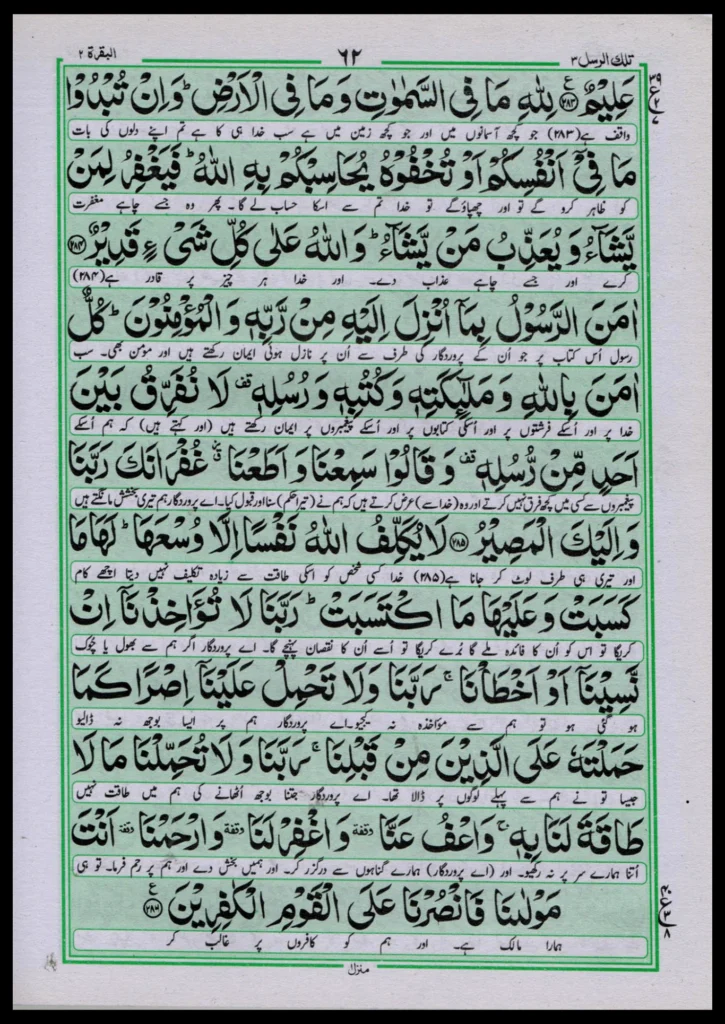 تلك الرسل ۳ ٦٢ البقرة ۲
عَلِيْمٌ ﴿۲۸۳﴾ لِلّٰهِ مَا فِى السَّمٰوٰتِ وَ مَا فِى الْاَرْضِ ؕ وَاِنْ تُبْدُوْا
واقف ہے (۲۸۳) جو کچھ آسمانوں میں اور جو کچھ زمین میں ہے سب خدا ہی کا ہے تم اپنے دلوں کی بات
مَا فِىْۤ اَنْفُسِكُمْ اَوْ تُخْفُوْهُ يُحَاسِبْكُمْ بِهِ اللّٰهُ ؕ فَيَغْفِرُ لِمَنْ
کو ظاہر کرو گے تو اور چھپاؤ گے تو خدا تم سے اسکا حساب لے گا۔ پھر وہ جسے چاہے مغفرت
يَّشَآءُ وَ يُعَذِّبُ مَنْ يَّشَآءُ ؕ وَاللّٰهُ عَلٰى كُلِّ شَىْءٍ قَدِيْرٌ ﴿۲۸۴﴾
کرے اور جسے چاہے عذاب دے۔ اور خدا ہر چیز پر قادر ہے (۲۸۴)
اٰمَنَ الرَّسُوْلُ بِمَاۤ اُنْزِلَ اِلَيْهِ مِنْ رَّبِّهٖ وَ الْمُؤْمِنُوْنَ ؕ كُلٌّ
رسول اُس کتاب پر جو اُن کے پروردگار کی طرف سے اُن پر نازل ہوئی ایمان رکھتے ہیں اور مومن بھی۔ سب
اٰمَنَ بِاللّٰهِ وَ مَلٰٓئِكَتِهٖ وَكُتُبِهٖ وَ رُسُلِهٖ قف لَا نُفَرِّقُ بَيْنَ
خدا پر اور اُسکے فرشتوں پر اور اُسکی کتابوں پر اور اسکے پیغمبروں پر ایمان رکھتے ہیں (اور کہتے ہیں) کہ ہم اُسکے
اَحَدٍ مِّنْ رُّسُلِهٖ قف وَ قَالُوْا سَمِعْنَا وَ اَطَعْنَا غُفْرَانَكَ رَبَّنَا
پیغمبروں سے کسی میں کچھ فرق نہیں کرتے اور وہ (خدا سے) عرض کرتے ہیں کہ ہم نے (تیرا حکم) سنا اور قبول کیا۔ اے پروردگار ہم تیری بخشش مانگتے ہیں
وَ اِلَيْكَ الْمَصِيْرُ ﴿۲۸۵﴾ لَا يُكَلِّفُ اللّٰهُ نَفْسًا اِلَّا وُسْعَهَا ؕ لَهَا مَا
اور تیری ہی طرف لوٹ کر جانا ہے (۲۸۵) خدا کسی شخص کو اسکی طاقت سے زیادہ تکلیف نہیں دیتا اچھے کام
كَسَبَتْ وَ عَلَيْهَا مَا اكْتَسَبَتْ ؕ رَبَّنَا لَا تُؤَاخِذْنَاۤ اِنْ
کریگا تو اس کو اُن کا فائدہ ملے گا بُرے کریگا تو اُسے اُن کا نقصان پہنچے گا۔ اے پروردگار اگر ہم سے بھول یا چُوک
نَّسِيْنَاۤ اَوْ اَخْطَاْنَا ۚ رَبَّنَا وَلَا تَحْمِلْ عَلَيْنَاۤ اِصْرًا كَمَا
ہو گئی ہو تو ہم سے مؤاخذہ نہ کیجیو۔ اے پروردگار ہم پر ایسا بوجھ نہ ڈالیو
حَمَلْتَهٗ عَلَى الَّذِيْنَ مِنْ قَبْلِنَا ۚ رَبَّنَا وَ لَا تُحَمِّلْنَا مَا لَا
جیسا تو نے ہم سے پہلے لوگوں پر ڈالا تھا۔ اے پروردگار جتنا بوجھ اُٹھانے کی ہم میں طاقت نہیں
طَاقَةَ لَنَا بِهٖ ۚ وَاعْفُ عَنَّا وقفة وَاغْفِرْ لَنَا وقفة وَارْحَمْنَا وقفة اَنْتَ
اُتنا ہمارے سر پر نہ رکھیو۔ اور (اے پروردگار) ہمارے گناہوں سے درگزر کر۔ اور ہمیں بخش دے اور ہم پر رحم فرما۔ تو ہی
مَوْلٰىنَا فَانْصُرْنَا عَلَى الْقَوْمِ الْكٰفِرِيْنَ ﴿۲۸۶﴾
ہمارا مالک ہے۔ اور ہم کو کافروں پر غالب کر
منزل